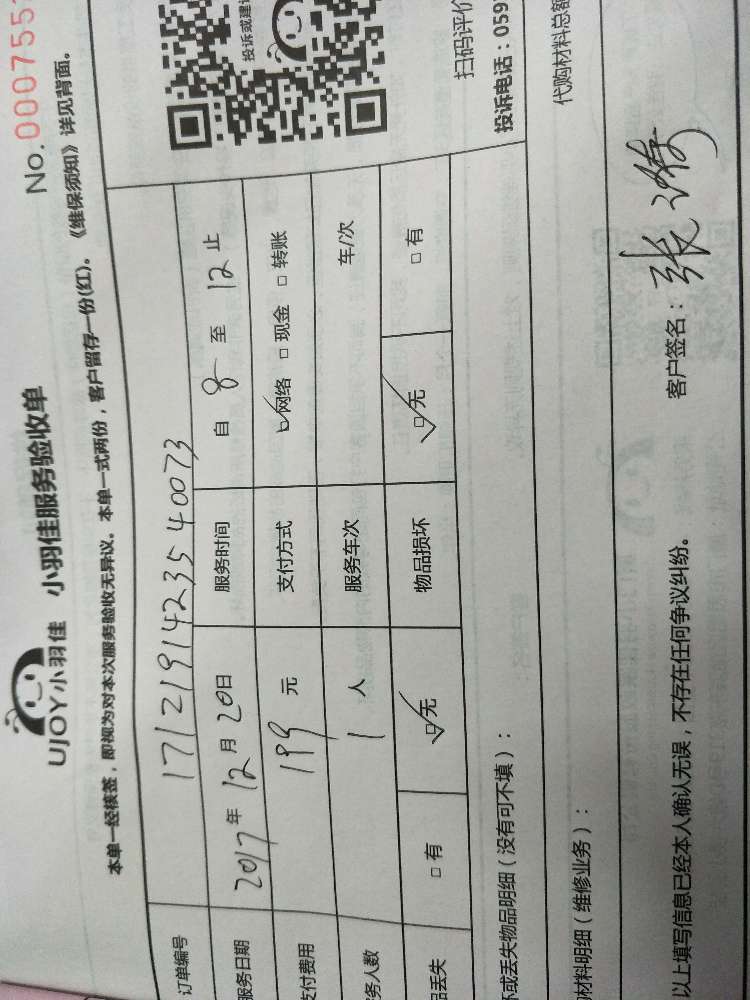 UJOY小羽佳 小羽佳服务验收单 No.000755
本单一经核签，即视为对本次服务验收无异议。本单一式两份，客户留存一份(红)。《维保须知》详见背面。
订单编号 171219142354 0073
服务日期 2017年12月20日 服务时间 自 8 至 12 止
支付费用 199 元 支付方式 ☑网络 □现金 □转账
务人数 1 人 服务车次 车/次
品丢失 □有 ☑无 物品损坏 ☑无 □有
投诉或建议
扫码评价
投诉电话：059
坏或丢失物品明细（没有可不填）：
材料明细（维修业务）：
代购材料总额
以上填写信息已经本人确认无误，不存在任何争议纠纷。
客户签名：张